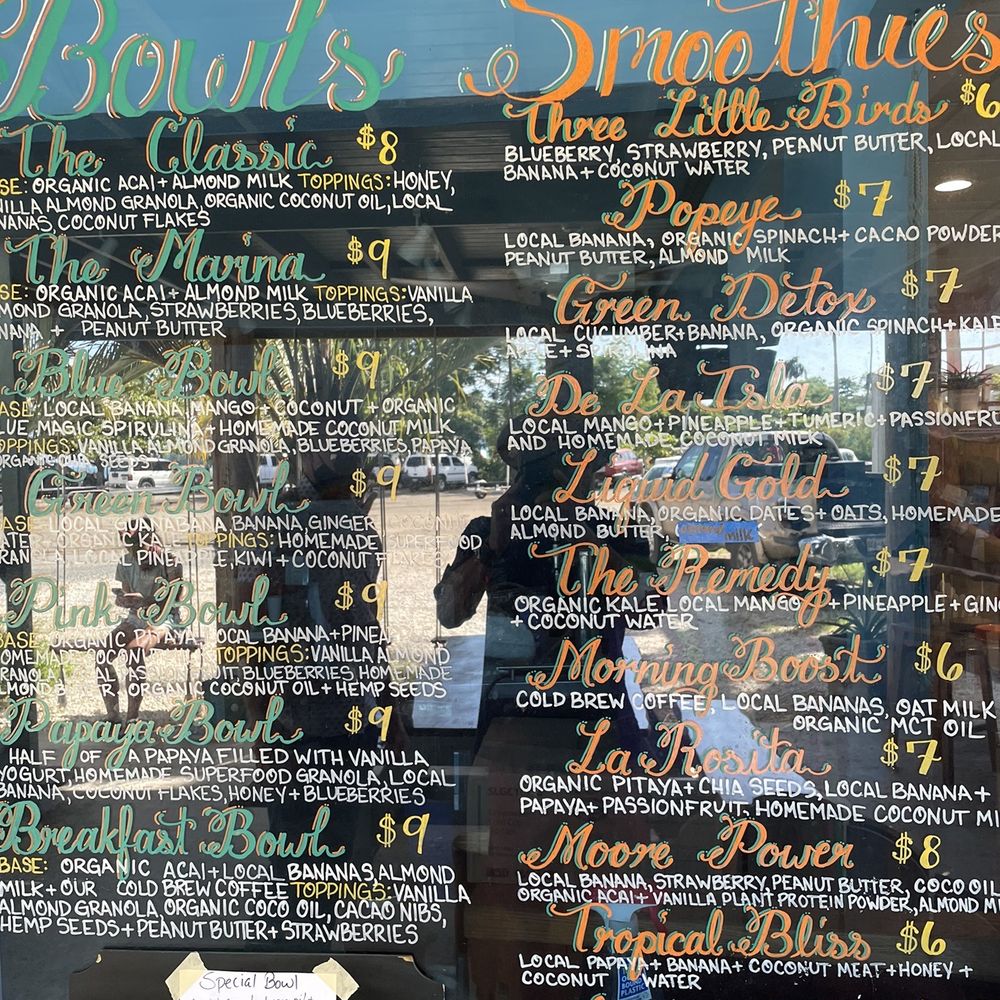 Bowls
The Classic $8
ASE: ORGANIC ACAI + ALMOND MILK TOPPINGS: HONEY,
NILLA ALMOND GRANOLA, ORGANIC COCONUT OIL, LOCAL
NANAS, COCONUT FLAKES
The Marina $9
SE: ORGANIC ACAI + ALMOND MILK TOPPINGS: VANILLA
MOND GRANOLA, STRAWBERRIES, BLUEBERRIES,
NANA + PEANUT BUTTER
Blue Bowl $9
ASE: LOCAL BANANA, MANGO + COCONUT + ORGANIC
LUE MAGIC SPIRULINA + HOMEMADE COCONUT MILK
TOPPINGS: VANILLA ALMOND GRANOLA, BLUEBERRIES, PAPAYA
ORGANIC SEEDS
Green Bowl $9
ASE: LOCAL GUANABANA, BANANA, GINGER COCONUT
ATER ORGANIC KALE TOPPINGS: HOMEMADE SUPERFOOD
RANOLA, LOCAL PINEAPPLE, KIWI + COCONUT FLAKES
Pink Bowl $9
BASE: ORGANIC PITAYA, LOCAL BANANA + PINEA
OMEMADE COCONUT TOPPINGS: VANILLA ALMOND
RANOLA, BLUEBERRIES, HOMEMADE
LMOND ORGANIC COCONUT OIL + HEMP SEEDS
Papaya Bowl $9
HALF OF A PAPAYA FILLED WITH VANILLA
YOGURT, HOMEMADE SUPERFOOD GRANOLA, LOCAL
BANANA, COCONUT FLAKES, HONEY + BLUEBERRIES
Breakfast Bowl $9
BASE: ORGANIC ACAI + LOCAL BANANAS, ALMOND
MILK + OUR COLD BREW COFFEE TOPPINGS: VANILLA
ALMOND GRANOLA, ORGANIC COCO OIL, CACAO NIBS,
HEMP SEEDS + PEANUT BUTTER + STRAWBERRIES
Special Bowl
Smoothies
Three Little Birds $6
BLUEBERRY, STRAWBERRY, PEANUT BUTTER, LOCAL
BANANA + COCONUT WATER
Popeye $7
LOCAL BANANA, ORGANIC SPINACH + CACAO POWDER
PEANUT BUTTER, ALMOND MILK
Green Detox $7
LOCAL CUCUMBER + BANANA, ORGANIC SPINACH + KALE
APPLE + SPIRULINA
De La Isla $7
LOCAL MANGO + PINEAPPLE + TUMERIC + PASSIONFRU
AND HOMEMADE COCONUT MILK
Liquid Gold $7
LOCAL BANANA, ORGANIC DATES + OATS, HOMEMADE
ALMOND BUTTER, milk
The Remedy $7
ORGANIC KALE, LOCAL MANGO + PINEAPPLE + GIN
+ COCONUT WATER
Morning Boost $6
COLD BREW COFFEE, LOCAL BANANAS, OAT MILK
ORGANIC MCT OIL
La Rosita $7
ORGANIC PITAYA + CHIA SEEDS, LOCAL BANANA +
PAPAYA + PASSIONFRUIT, HOMEMADE COCONUT MI
Moore Power $8
LOCAL BANANA, STRAWBERRY, PEANUT BUTTER, COCO OIL
ORGANIC ACAI + VANILLA PLANT PROTEIN POWDER, ALMOND MI
Tropical Bliss $6
LOCAL PAPAYA + BANANA + COCONUT MEAT + HONEY +
COCONUT WATER